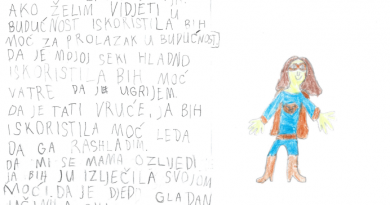 AKO ŽELIM VIDJETI U
BUDUĆNOST ISKORISTILA BIH
MOĆ ZA PROLAZAK U BUDUĆNOST
DA JE MOJOJ SEKI HLADNO
ISKORISTILA BIH MOĆ
VATRE DA JE UGRIJEM.
DA JE TATI VRUĆE, JA BIH
ISKORISTILA MOĆ LEDA
DA GA RASHLADIM.
DA MI SE MAMA OZLIJEDI
JA BIH JU IZLJEČILA SVOJOM
MOĆI. DA JE DJED GLADAN